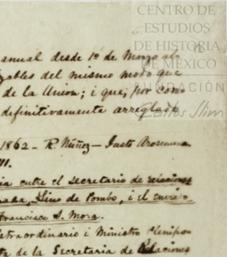 CENTRO DE
ESTUDIOS
DE HISTORIA
DE MÉXICO
Carlos Slim
anual desde 1º de Marzo de
del mismo modo que
de la Union; i que, por con
definitivamente arreglado
1862 - P. Nuñez - Justo Arosemena
III.
entre el Secretario de relaciones
Lino de Pombo, i el envia
Francisco S. Mora.
extraordinario i Ministro Plenipo
de la Secretaría de Relaciones